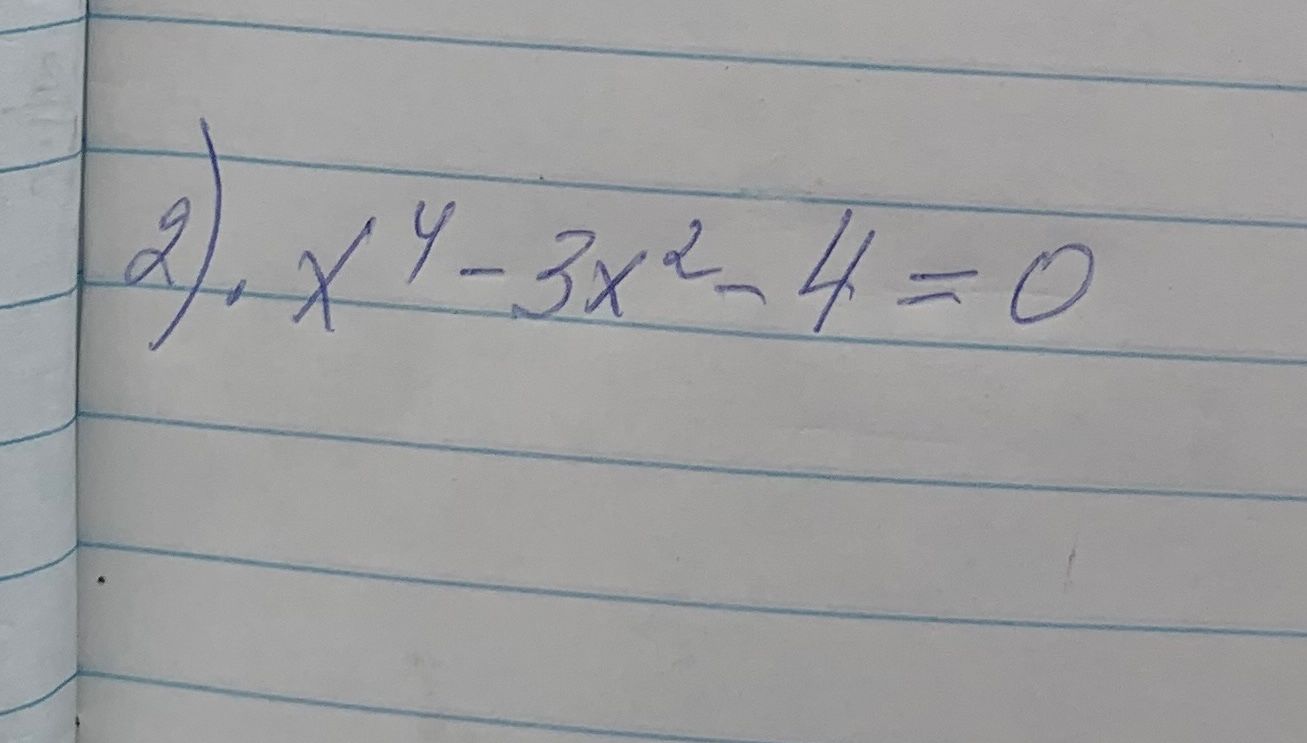 2). x⁴ - 3x² - 4 = 0